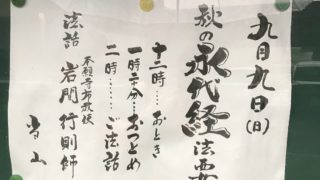 九月九日(日)
秋の永代経法要
十二時……おとき
一時三十分…おつとめ
二時……ご法話
本願寺布教使
法話 岩門行則師
当山